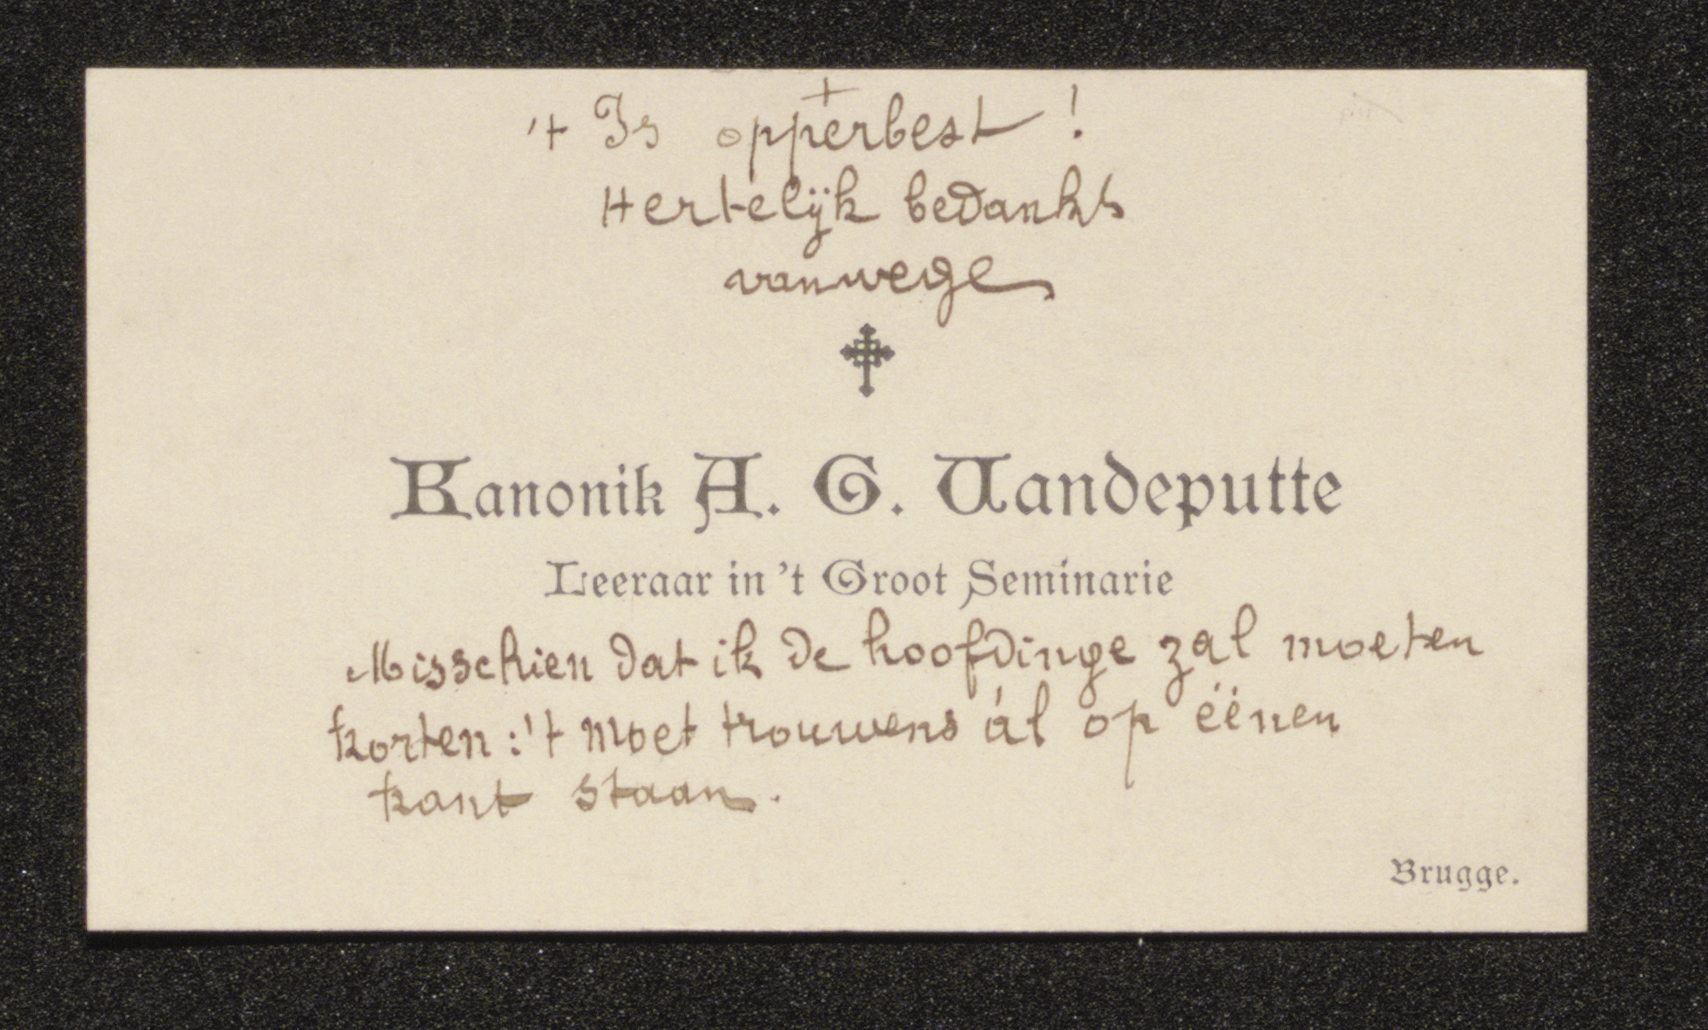 +
't Is opperbest!
Hertelijk bedankt
vanwege
Kanonik A. G. Vandeputte
Leeraar in 't Groot Seminarie
Misschien dat ik de hoofdinge zal moeten
korten: 't moet trouwens ál op éénen
kant staan.
Brugge.